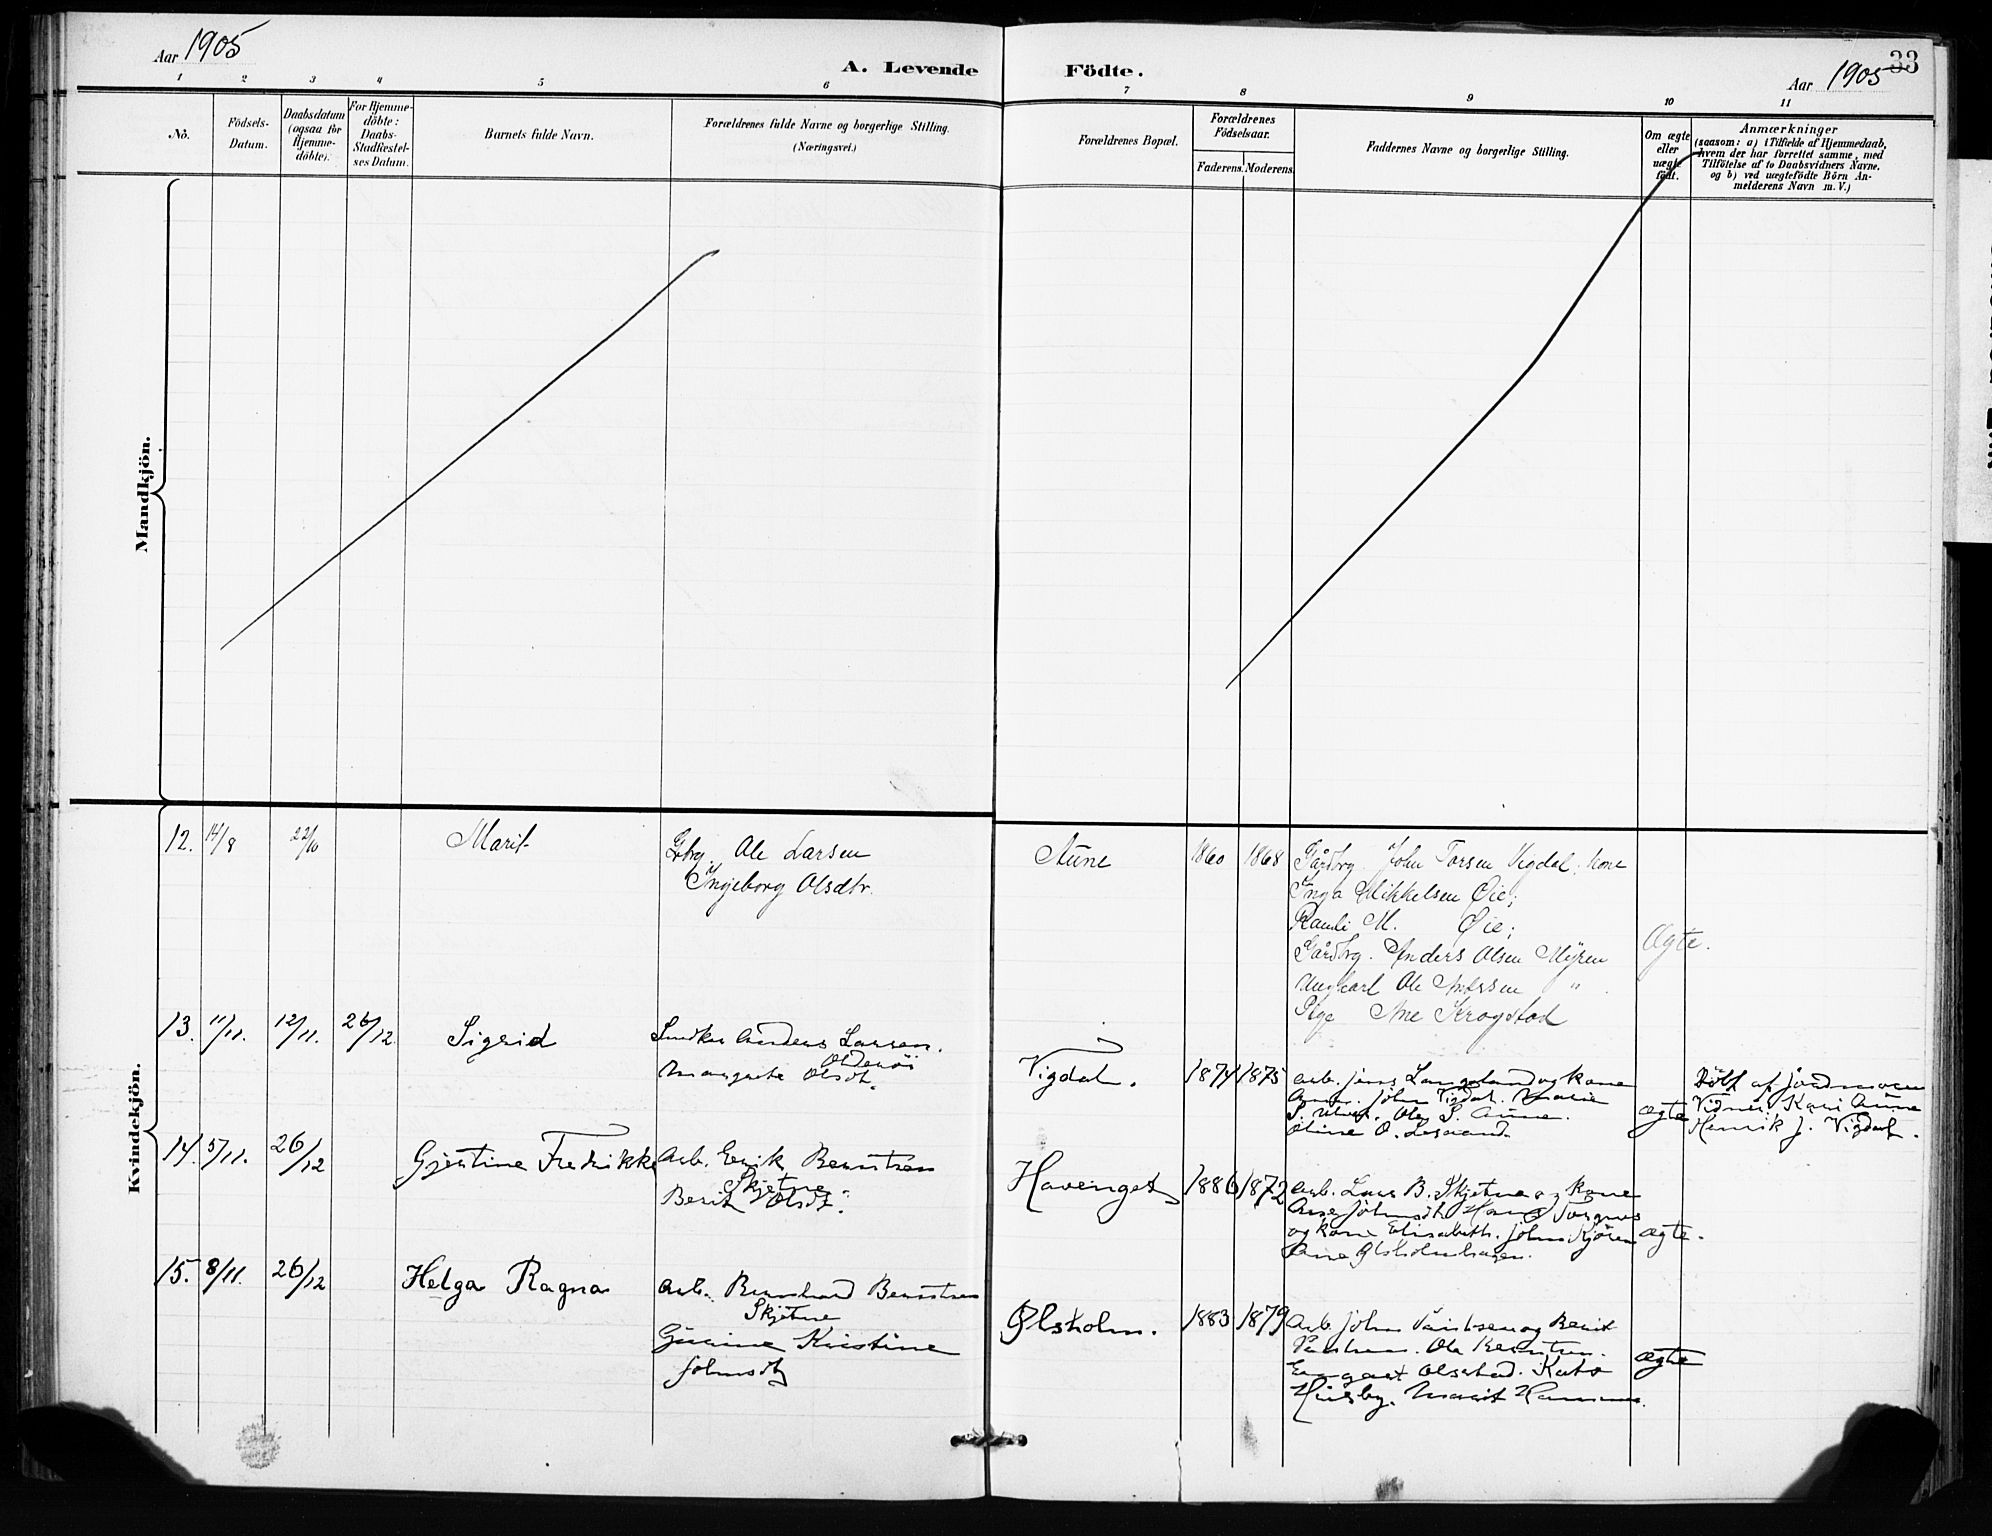 Aar 1905
A. Levende
Födte.
Aar 1905
33
1 2 3 4 5 6 7 8 9 10 11
No.
Födsels-
Datum.
Daabsdatum
(ogsaa för
Hjemme-
döbte).
For Hjemme-
döbte:
Daabs-
Stadfæstel-
ses Datum.
Barnets fulde Navn.
Forældrenes fulde Navne og borgerlige Stilling.
(Næringsvei.)
Forældrenes Bopæl.
Forældrenes
Födselsaar.
Faderens. Moderens.
Faddernes Navne og borgerlige Stilling.
Om ægte
eller
uægte
födt.
Anmærkninger
(saasom: a) i Tilfælde af Hjemmedaab,
hvem der har forrettet samme, med
Tilföielse af to Daabsvidners Navne.
og b) ved uægtefödte Börn An-
melderens Navn m. V.)
Mandkjön.
Kvindekjön.
12. 14/8 22/10 Marit
Gbrg. Ole Larsen
Ingeborg Olsdtr.
Aune 1860 1868
Gårdbrg. John Tarsen Vigdal, kone
Inga Mikkelsen Øie;
Øie;
Gårdbrg. Anders Olsen Myren
Ungkarl Ole Andersen "
Pige Ane Krogstad
Ægte.
13. 11/11. 12/11. 26/12. Sigrid
Anders Larsen.
Oldenöi
Margrete Olsdt.
Vigdal. 1874 1875
Arb. Jens Langeland og kone
John Vigdal. Marie
Ole S. Aune.
Oline O.
ægte
Döbt af Jordmoren
Vidner: Kari Aune
Henrik J. Vigdal.
14. 5/11. 26/12 Gjertine Fredrikke
Arb. Erik Berntsen
Skjetne
Berit Olsdt.
Havenget 1886 1872
Arb. Lars B. Skjetne og kone
Ane Johnsdt. Hans
og kone Elisabeth. John Kjören
Ane Ølsholmhagen.
ægte.
15. 8/11. 26/12 Helga Ragna
Arb. Bernhard Berntsen
Skjetne
Gurine Kristine
Johnsdt
Ølsholm. 1883 1879
Arb. John og Berit
Ole Berntsen.
Olsstad.
Huseby. Marit
ægte